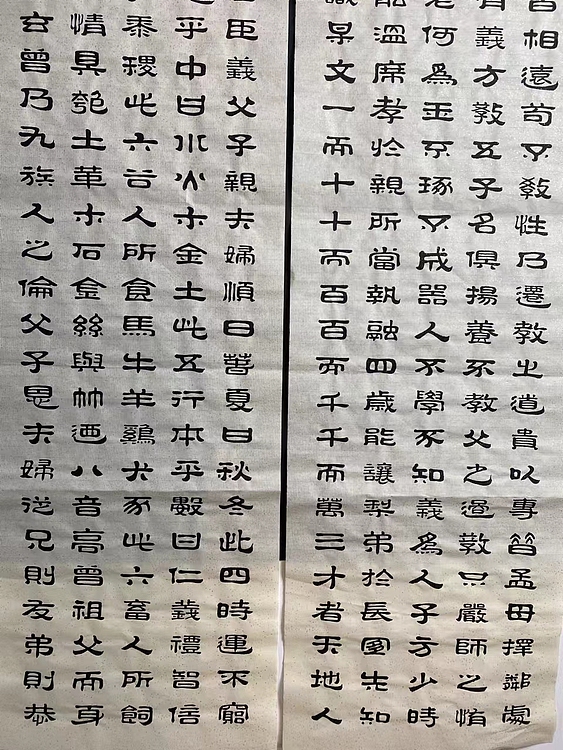 相遠苟不教性乃遷教之道貴以專昔孟母擇鄰處
義方教五子名俱揚養不教父之過教不嚴師之惰
老何為玉不琢不成器人不學不知義為人子方少時
溫席孝於親所當執融四歲能讓梨弟於長宜先知
某文一而十十而百百而千千而萬三才者天地人
臣義父子親夫婦順曰春夏曰秋冬此四時運不窮
乎中曰水火木金土此五行本乎數曰仁義禮智信
黍稷此六谷人所食馬牛羊雞犬豕此六畜人所飼
情具匏土革木石金絲與竹迺八音高曾祖父而身
玄曾乃九族人之倫父子恩夫婦從兄則友弟則恭